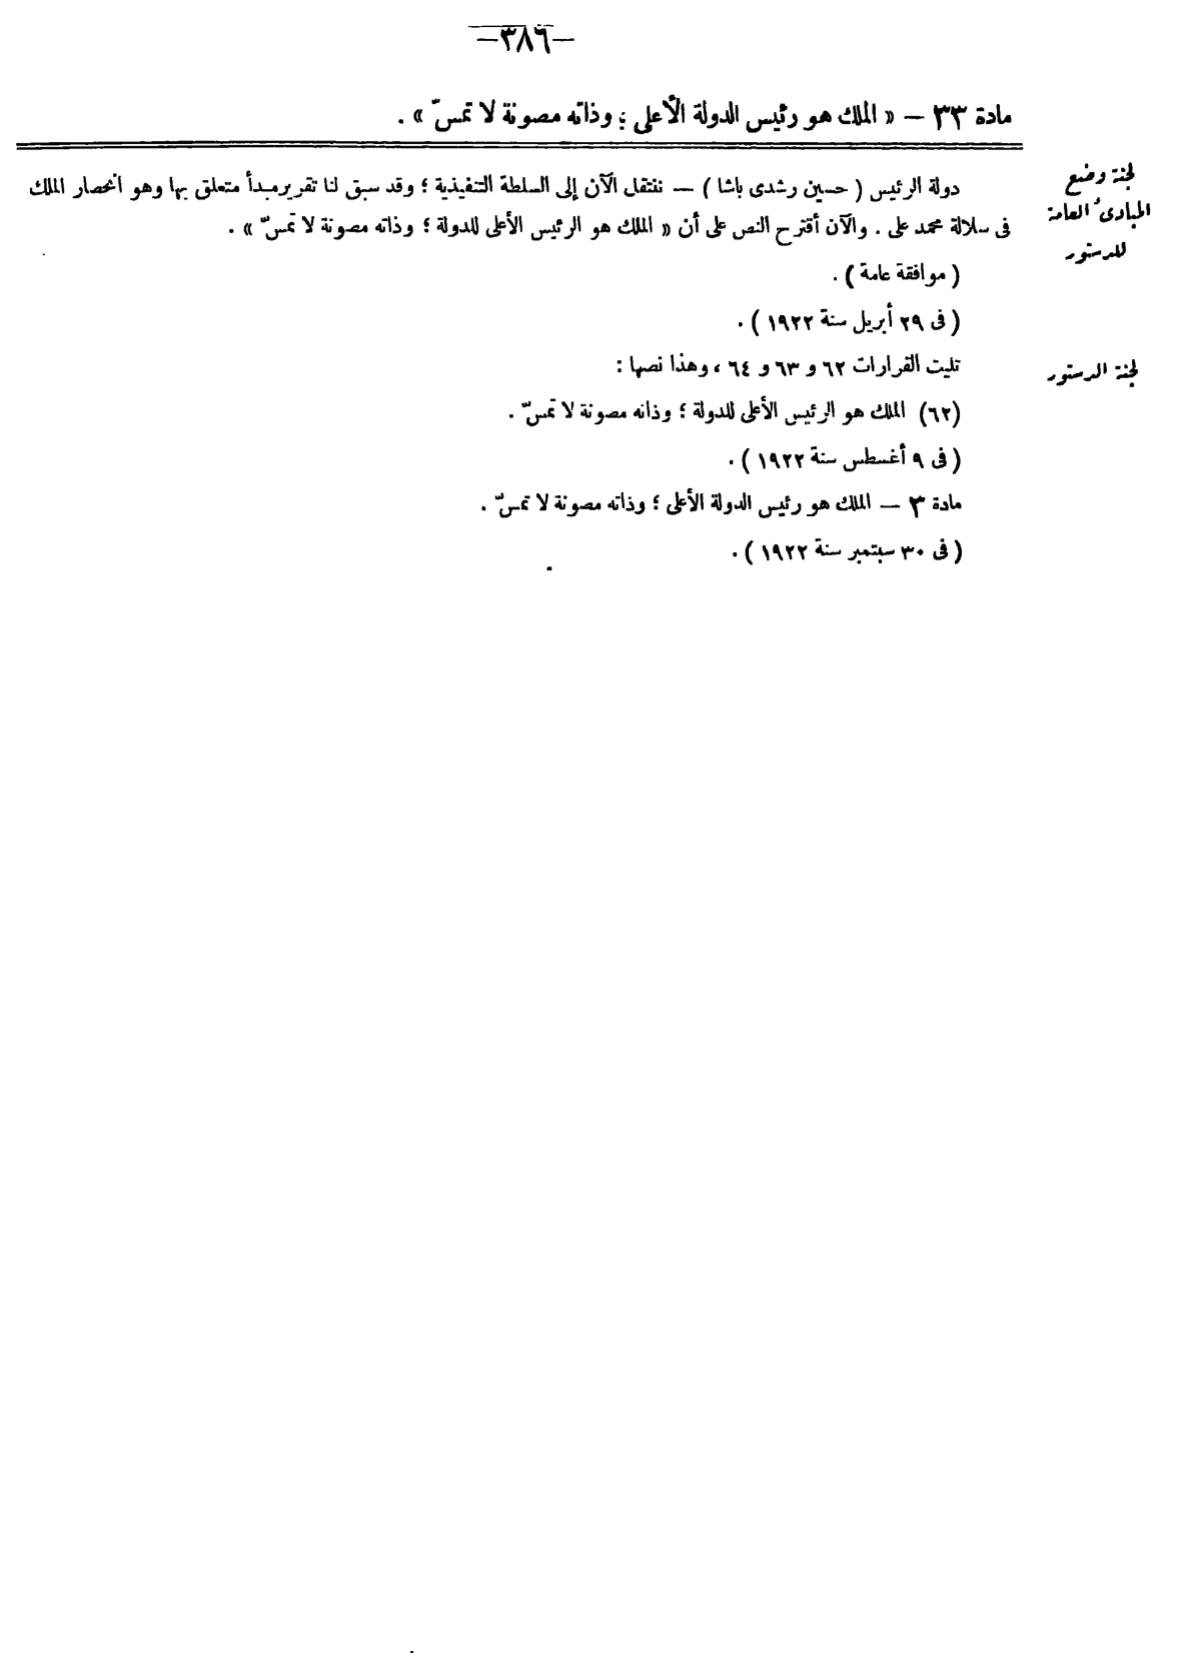 —٣٨٦—
مادة ٣٣ — « الملك هو رئيس الدولة الأعلى ؛ وذاته مصونة لا تمسّ » .
لجنة وضع
المبادئ العامة
للدستور
دولة الرئيس ( حسين رشدى باشا ) — ننتقل الآن إلى السلطة التنفيذية ؛ وقد سبق لنا تقرير مبدأ متعلق بها وهو انحصار الملك
فى سلالة محمد على . والآن أقترح النص على أن « الملك هو الرئيس الأعلى للدولة ؛ وذاته مصونة لا تمسّ » .
( موافقة عامة ) .
( فى ٢٩ أبريل سنة ١٩٢٢ ) .
لجنة الدستور
تليت القرارات ٦٢ و ٦٣ و ٦٤ ، وهذا نصها :
(٦٢) الملك هو الرئيس الأعلى للدولة ؛ وذاته مصونة لا تمسّ .
( فى ٩ أغسطس سنة ١٩٢٢ ) .
مادة ٣ — الملك هو رئيس الدولة الأعلى ؛ وذاته مصونة لا تمسّ .
( فى ٣٠ سبتمبر سنة ١٩٢٢ ) .